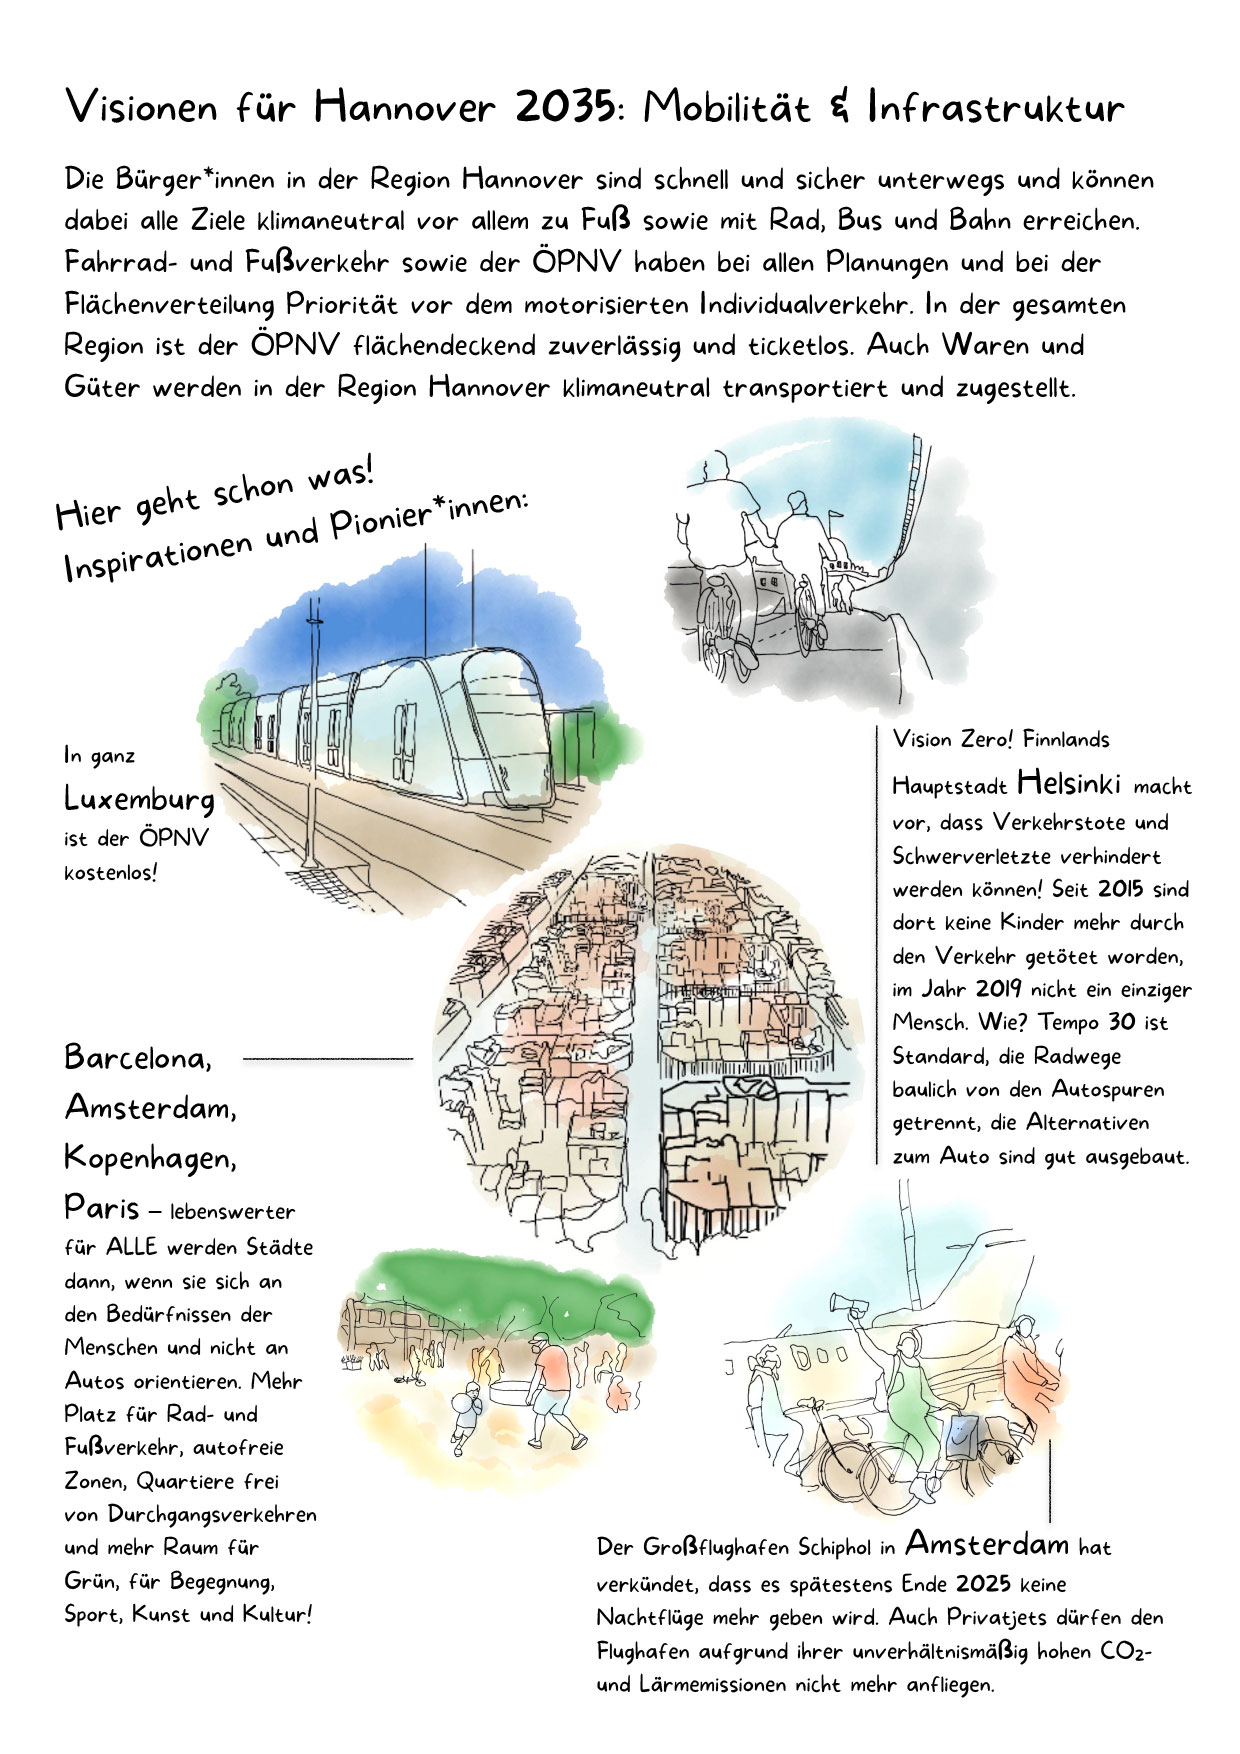 Visionen für Hannover 2035: Mobilität & Infrastruktur
Die Bürger*innen in der Region Hannover sind schnell und sicher unterwegs und können
dabei alle Ziele klimaneutral vor allem zu Fuß sowie mit Rad, Bus und Bahn erreichen.
Fahrrad- und Fußverkehr sowie der ÖPNV haben bei allen Planungen und bei der
Flächenverteilung Priorität vor dem motorisierten Individualverkehr. In der gesamten
Region ist der ÖPNV flächendeckend zuverlässig und ticketlos. Auch Waren und
Güter werden in der Region Hannover klimaneutral transportiert und zugestellt.
Hier geht schon was!
Inspirationen und Pionier*innen:
In ganz
Luxemburg
ist der ÖPNV
kostenlos!
Vision Zero! Finnlands
Hauptstadt Helsinki macht
vor, dass Verkehrstote und
Schwerverletzte verhindert
werden können! Seit 2015 sind
dort keine Kinder mehr durch
den Verkehr getötet worden,
im Jahr 2019 nicht ein einziger
Mensch. Wie? Tempo 30 ist
Standard, die Radwege
baulich von den Autospuren
getrennt, die Alternativen
zum Auto sind gut ausgebaut.
Barcelona,
Amsterdam,
Kopenhagen,
Paris – lebenswerter
für ALLE werden Städte
dann, wenn sie sich an
den Bedürfnissen der
Menschen und nicht an
Autos orientieren. Mehr
Platz für Rad- und
Fußverkehr, autofreie
Zonen, Quartiere frei
von Durchgangsverkehren
und mehr Raum für
Grün, für Begegnung,
Sport, Kunst und Kultur!
Der Großflughafen Schiphol in Amsterdam hat
verkündet, dass es spätestens Ende 2025 keine
Nachtflüge mehr geben wird. Auch Privatjets dürfen den
Flughafen aufgrund ihrer unverhältnismäßig hohen CO₂-
und Lärmemissionen nicht mehr anfliegen.